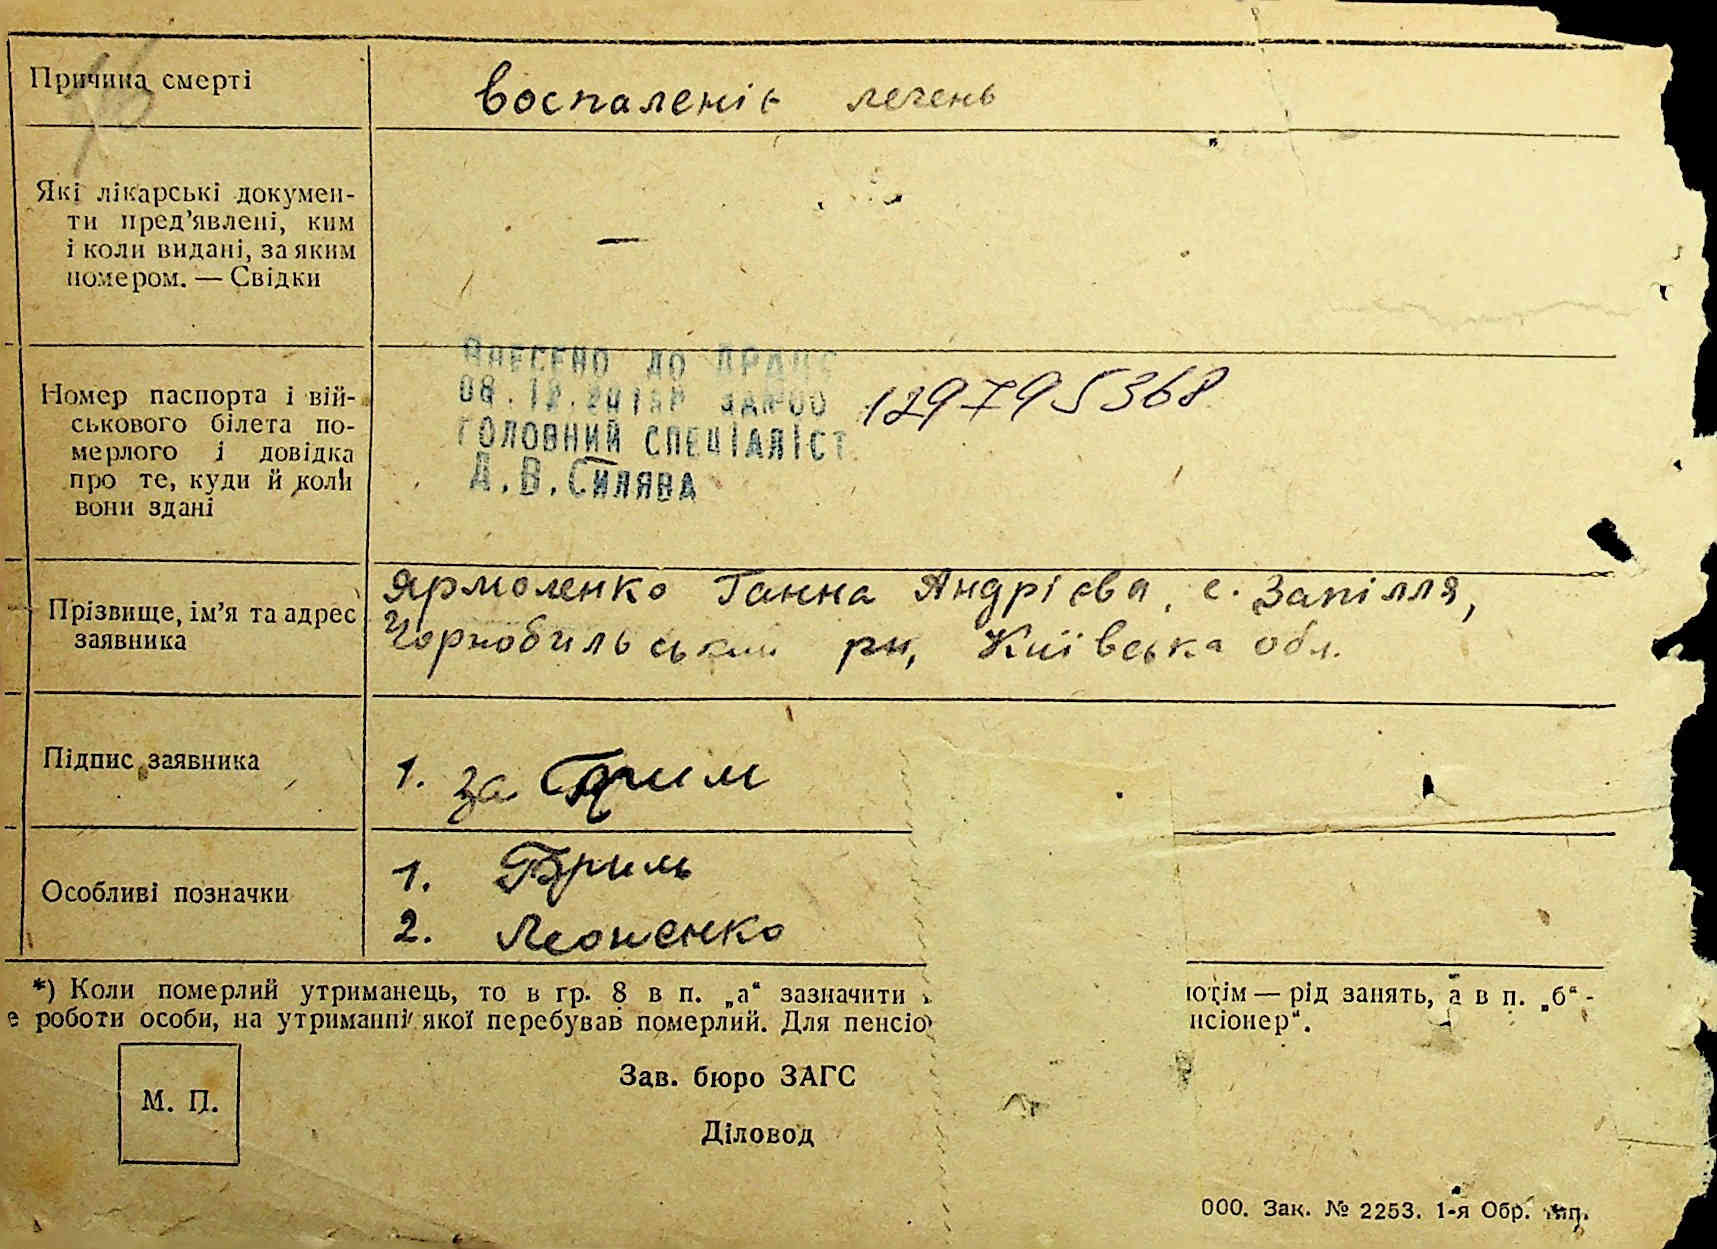 Причина смерті
воспаленіє лечень
Які лікарські докумен-
ти пред’явлені, ким
і коли видані, за яким
номером. — Свідки
—
Номер паспорта і вій-
ськового білета по-
мерлого і довідка
про те, куди й коли
вони здані
Внесено до ДРАЦС
08.12.201 за №00 129795368
головний спеціаліст
А.В.Силява
Прізвище, ім’я та адрес
заявника
Ярмоленко Ганна Андрієвн, с. Запілля,
Чорнобильський рн, Київська обл.
Підпис заявника
1. за
Особливі позначки
1. Бриль
2. Леоненко
*) Коли померлий утриманець, то в гр. 8 в п. „а“ зазначити ютім — рід занять, а в п. „б“ -
е роботи особи, на утриманні якої перебував померлий. Для пенсіо нсіонер“.
М. П.
Зав. бюро ЗАГС
Діловод
000. Зак. № 2253. 1-я Обр. тип.